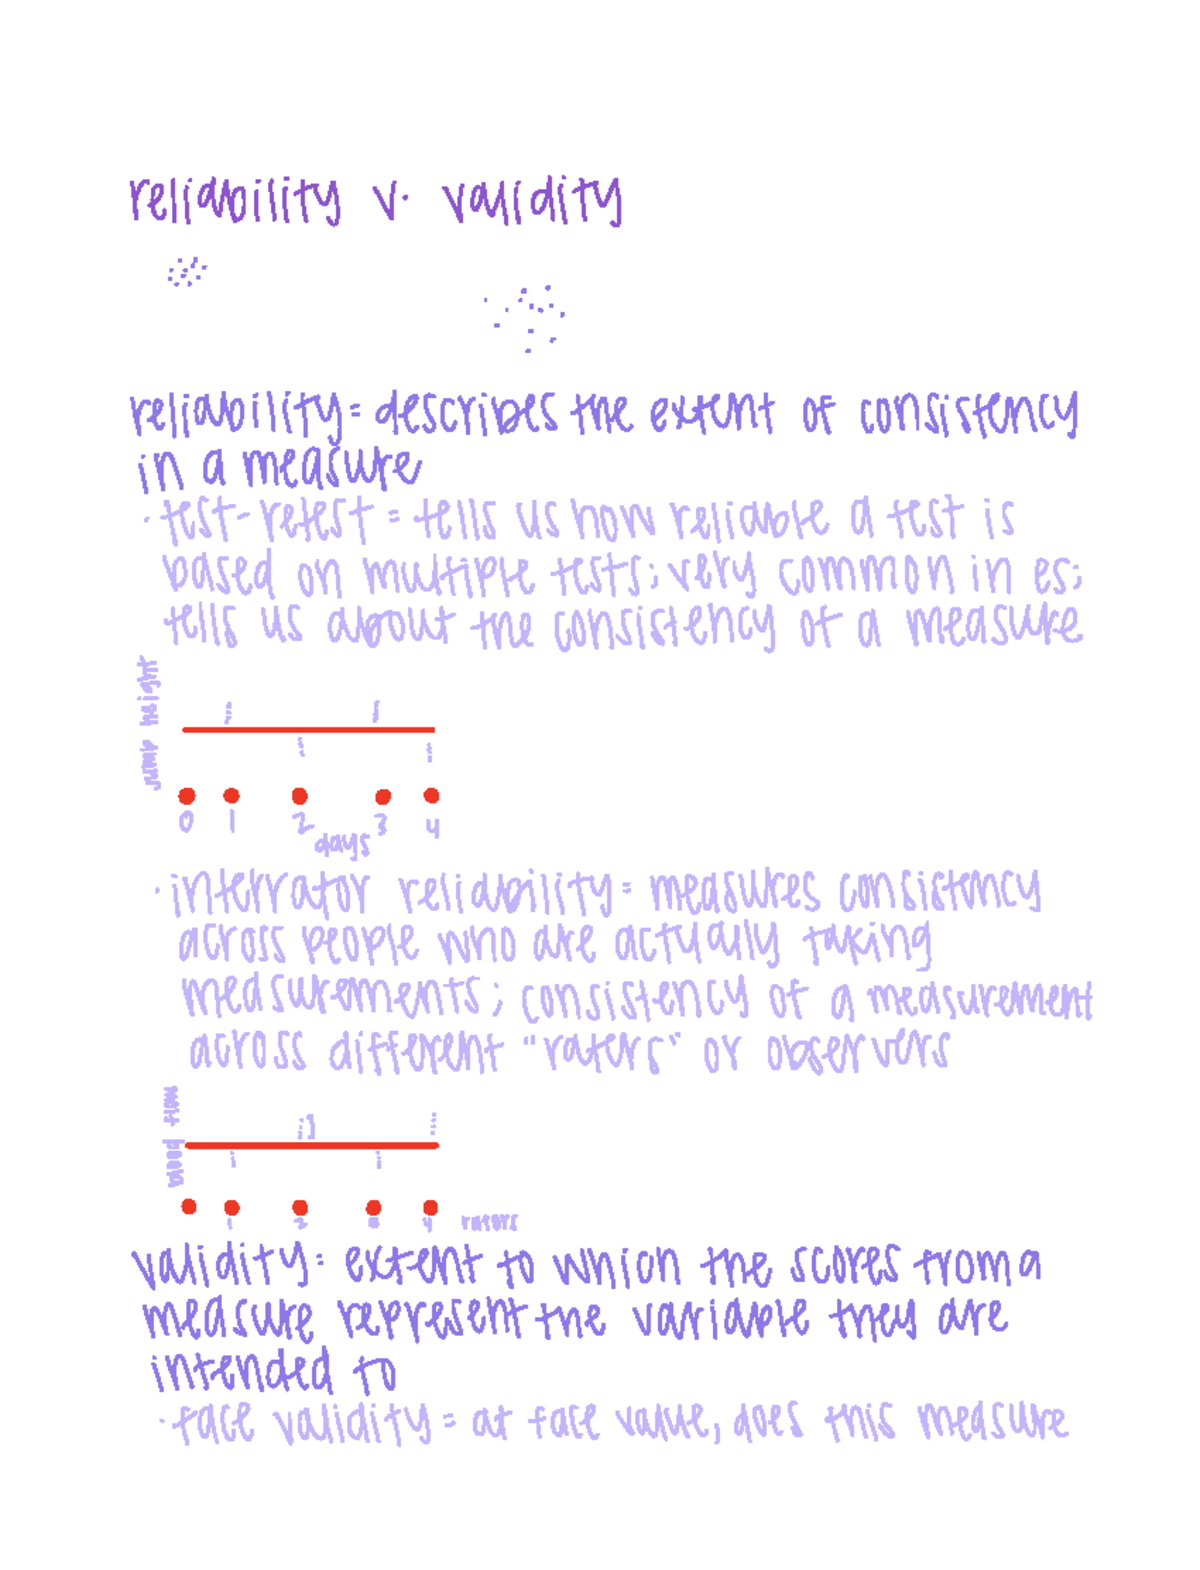 reliability v. validity
reliability = describes the extent of consistency
in a measure
· test-retest = tells us how reliable a test is
based on multiple tests; very common in es;
tells us about the consistency of a measure
jump height
0 1 2 3 4
days
· interrator reliability = measures consistency
across people who are actually taking
measurements; consistency of a measurement
across different "raters" or observers
blood flow
1 2 3 4 raters
validity = extent to which the scores from a
measure represent the variable they are
intended to
· face validity = at face value, does this measure